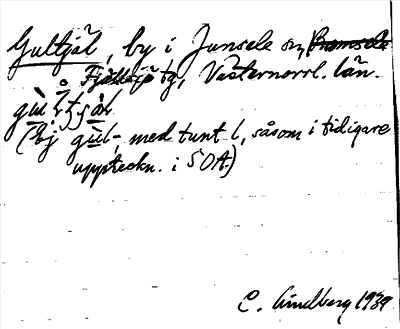 Gultjäl, by i Junsele sn, Ramsele
Fjällsjö tg, Västernorrl. län.
(Ej gùl-, med tunt l, såsom i tidigare
uppteckn. i SOA)
C. Lindberg 1939